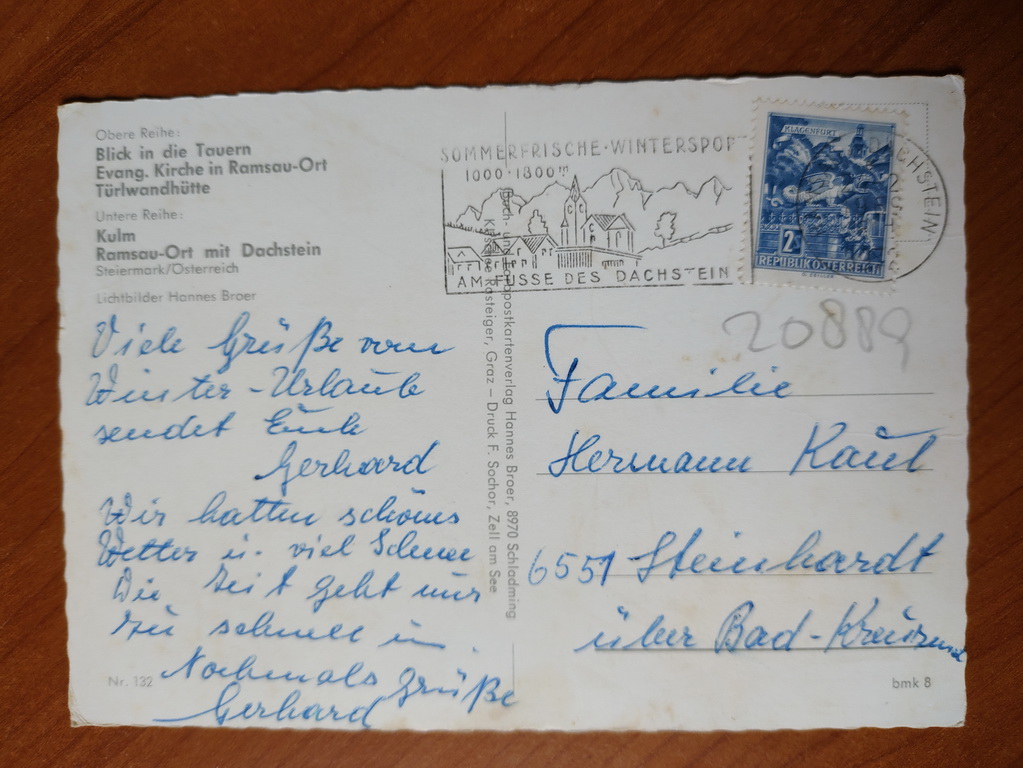 Obere Reihe:
Blick in die Tauern
Evang. Kirche in Ramsau-Ort
Türlwandhütte
Untere Reihe:
Kulm
Ramsau-Ort mit Dachstein
Steiermark/Österreich
Lichtbilder Hannes Broer
Viele Grüße vom
Winter-Urlaub
sendet Euch
Gerhard
Wir hatten schönes
Wetter u. viel Schnee
Die Zeit geht nur
zu schnell
Nochmals Grüße
Gerhard
Nr. 132
Buch- und postkartenverlag Hannes Broer, 8970 Schladming
Rosteiger, Graz – Druck F. Sochor, Zell am See
SOMMERFRISCHE·WINTERSPOR
1000-1800m
AM FUSSE DES DACHSTEIN
KLAGENFURT
2S
REPUBLIK ÖSTERREICH
CHSTEIN
20889
Familie
Hermann Kaul
6551 Steinhardt
über Bad-Kreuzn
bmk 8